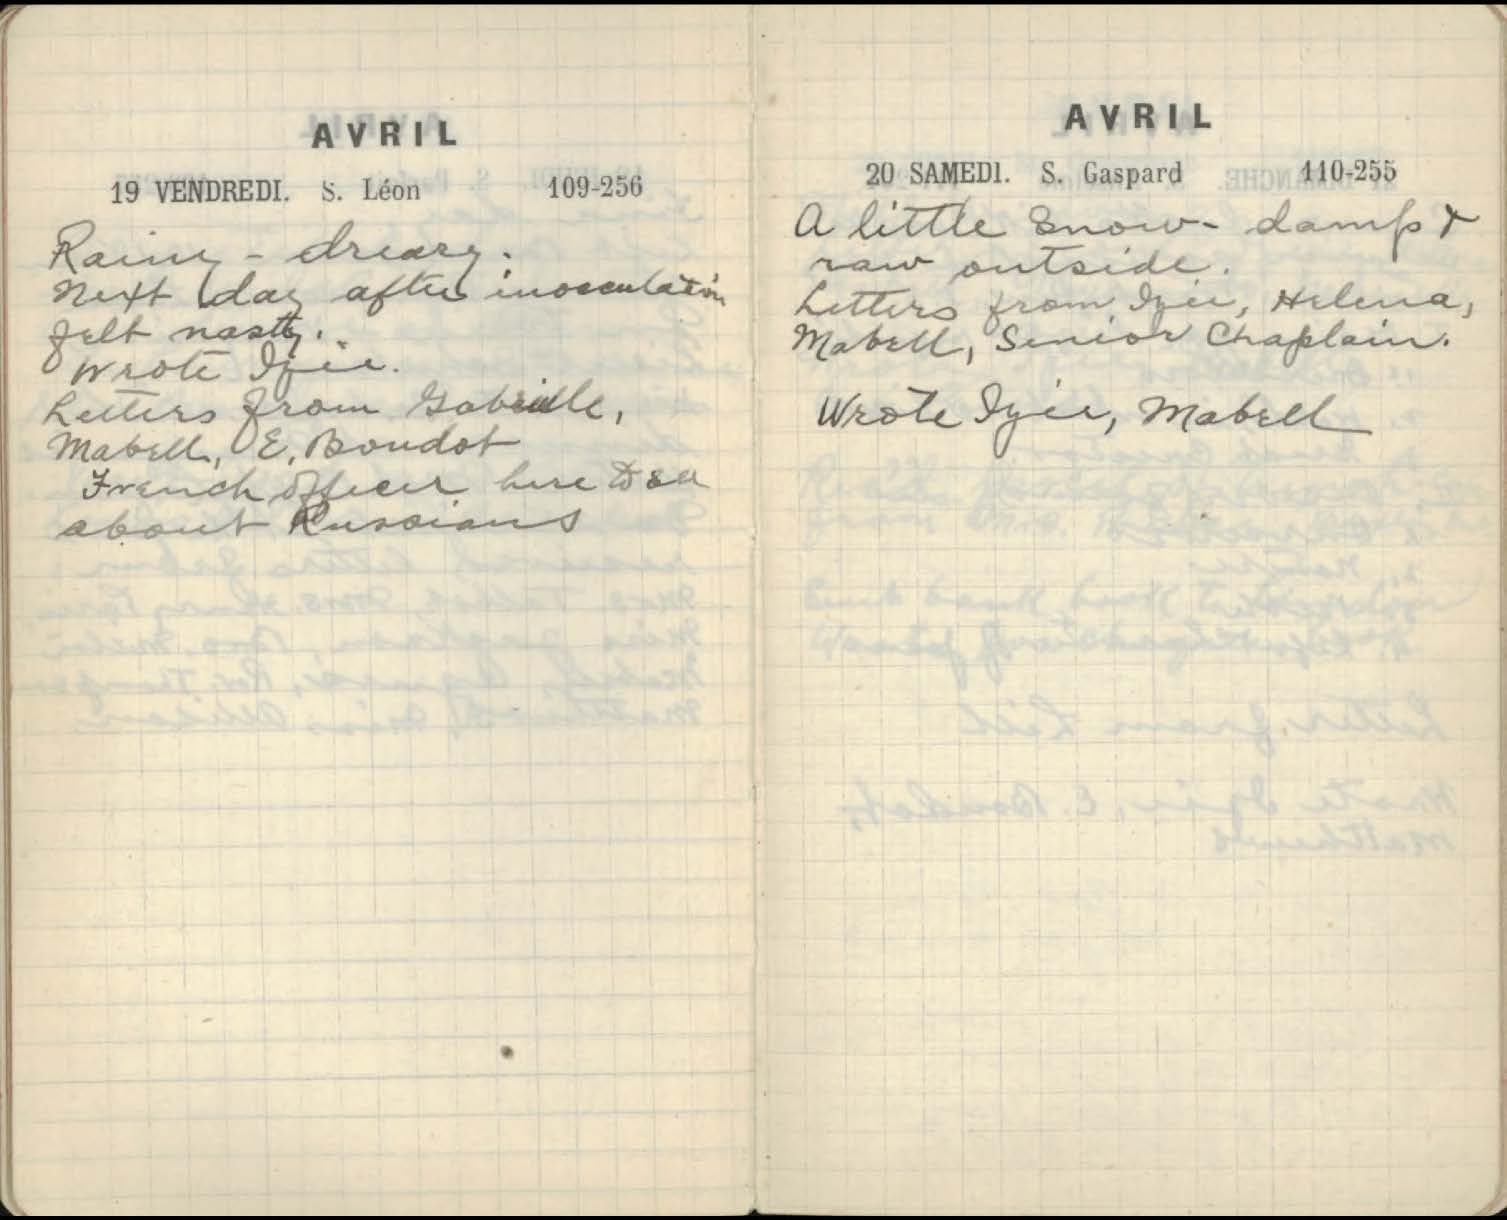 AVRIL
19 VENDREDI. S. Léon 109-256
Rainy - dreary.
Next day after inocculation
felt nasty.
Wrote Izie.
Letters from Gabrielle,
Mabell, E. Boudot
French officer here to see
about Russians
AVRIL
20 SAMEDI. S. Gaspard 110-255
A little snow - damp &
raw outside.
Letters from Izie, Helena,
Mabell, Senior Chaplain.
Wrote Izie, Mabell